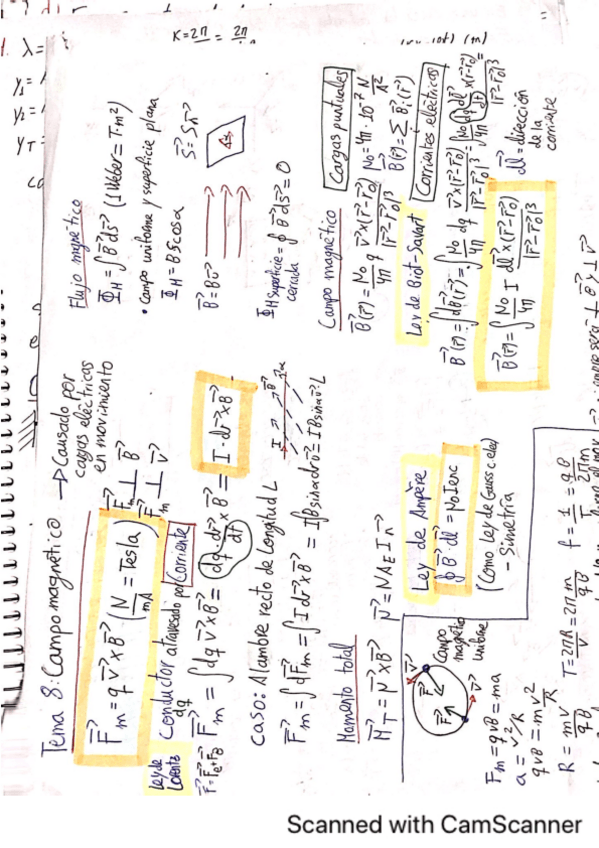 Tema 8: Campo magnético → Causado por
cagas eléctricas
en movimiento
F⃗m = q v⃗ x B⃗ (N/mA = Tesla) F⃗m ⊥ B⃗
F⃗m ⊥ v⃗
Ley de
Lorentz
F⃗ = F⃗e + F⃗B
Conductor atravesado por Corriente
F⃗m = ∫dq v⃗ x B⃗ = dq · dr⃗/dt x B⃗ = I · dr⃗ x B⃗
caso: Alambre recto de longitud L
F⃗m = ∫dF⃗m = ∫I dr⃗ x B⃗ = I∫B sinα dr u⃗ = I B sinα u⃗ · L
Momento total
M⃗T = N⃗ x B⃗ N⃗ = N A E I n⃗
Campo
magnético
uniforme
Fm = qvB = ma
a = v²/R
qvB = m v²/R
R = mv/qB T = 2πR/v = 2π m/qB f = 1/T = qB/2πm
Ley de Ampère
∮ B⃗ · dl⃗ = No Ienc
(Como Ley de Gauss c. ele)
- Simetría
Flujo magnético
ΦH = ∫B⃗ dS⃗ (1 Weber = T·m²)
• Campo uniforme y superficie plana
ΦH = B S cosα
B⃗ = B u⃗
S⃗ = S n⃗
ΦH superficie cerrada = ∮ B⃗ dS⃗ = 0
Campo magnético Cargas puntuales
B⃗(r⃗) = No/4π q v⃗ x (r⃗ - r⃗0)/|r⃗ - r⃗0|³ No = 4π · 10⁻⁷ N/A²
B⃗(r⃗) = Σ B⃗i (r⃗)
Ley de Biot-Savart Corrientes eléctricas
B⃗(r⃗) = ∫dB⃗(r⃗) = ∫ No/4π dq v⃗ x (r⃗ - r⃗0)/|r⃗ - r⃗0|³ = ∫ No/4π dq dl⃗/dt x (r⃗ - r⃗0)/|r⃗ - r⃗0|³
B⃗(r⃗) = ∫ No/4π I dl⃗ x (r⃗ - r⃗0)/|r⃗ - r⃗0|³
dl⃗ = dirección
de la
corriente
K = 2π = 2π
λ =
y1 =
y2 =
yT =
Scanned with CamScanner